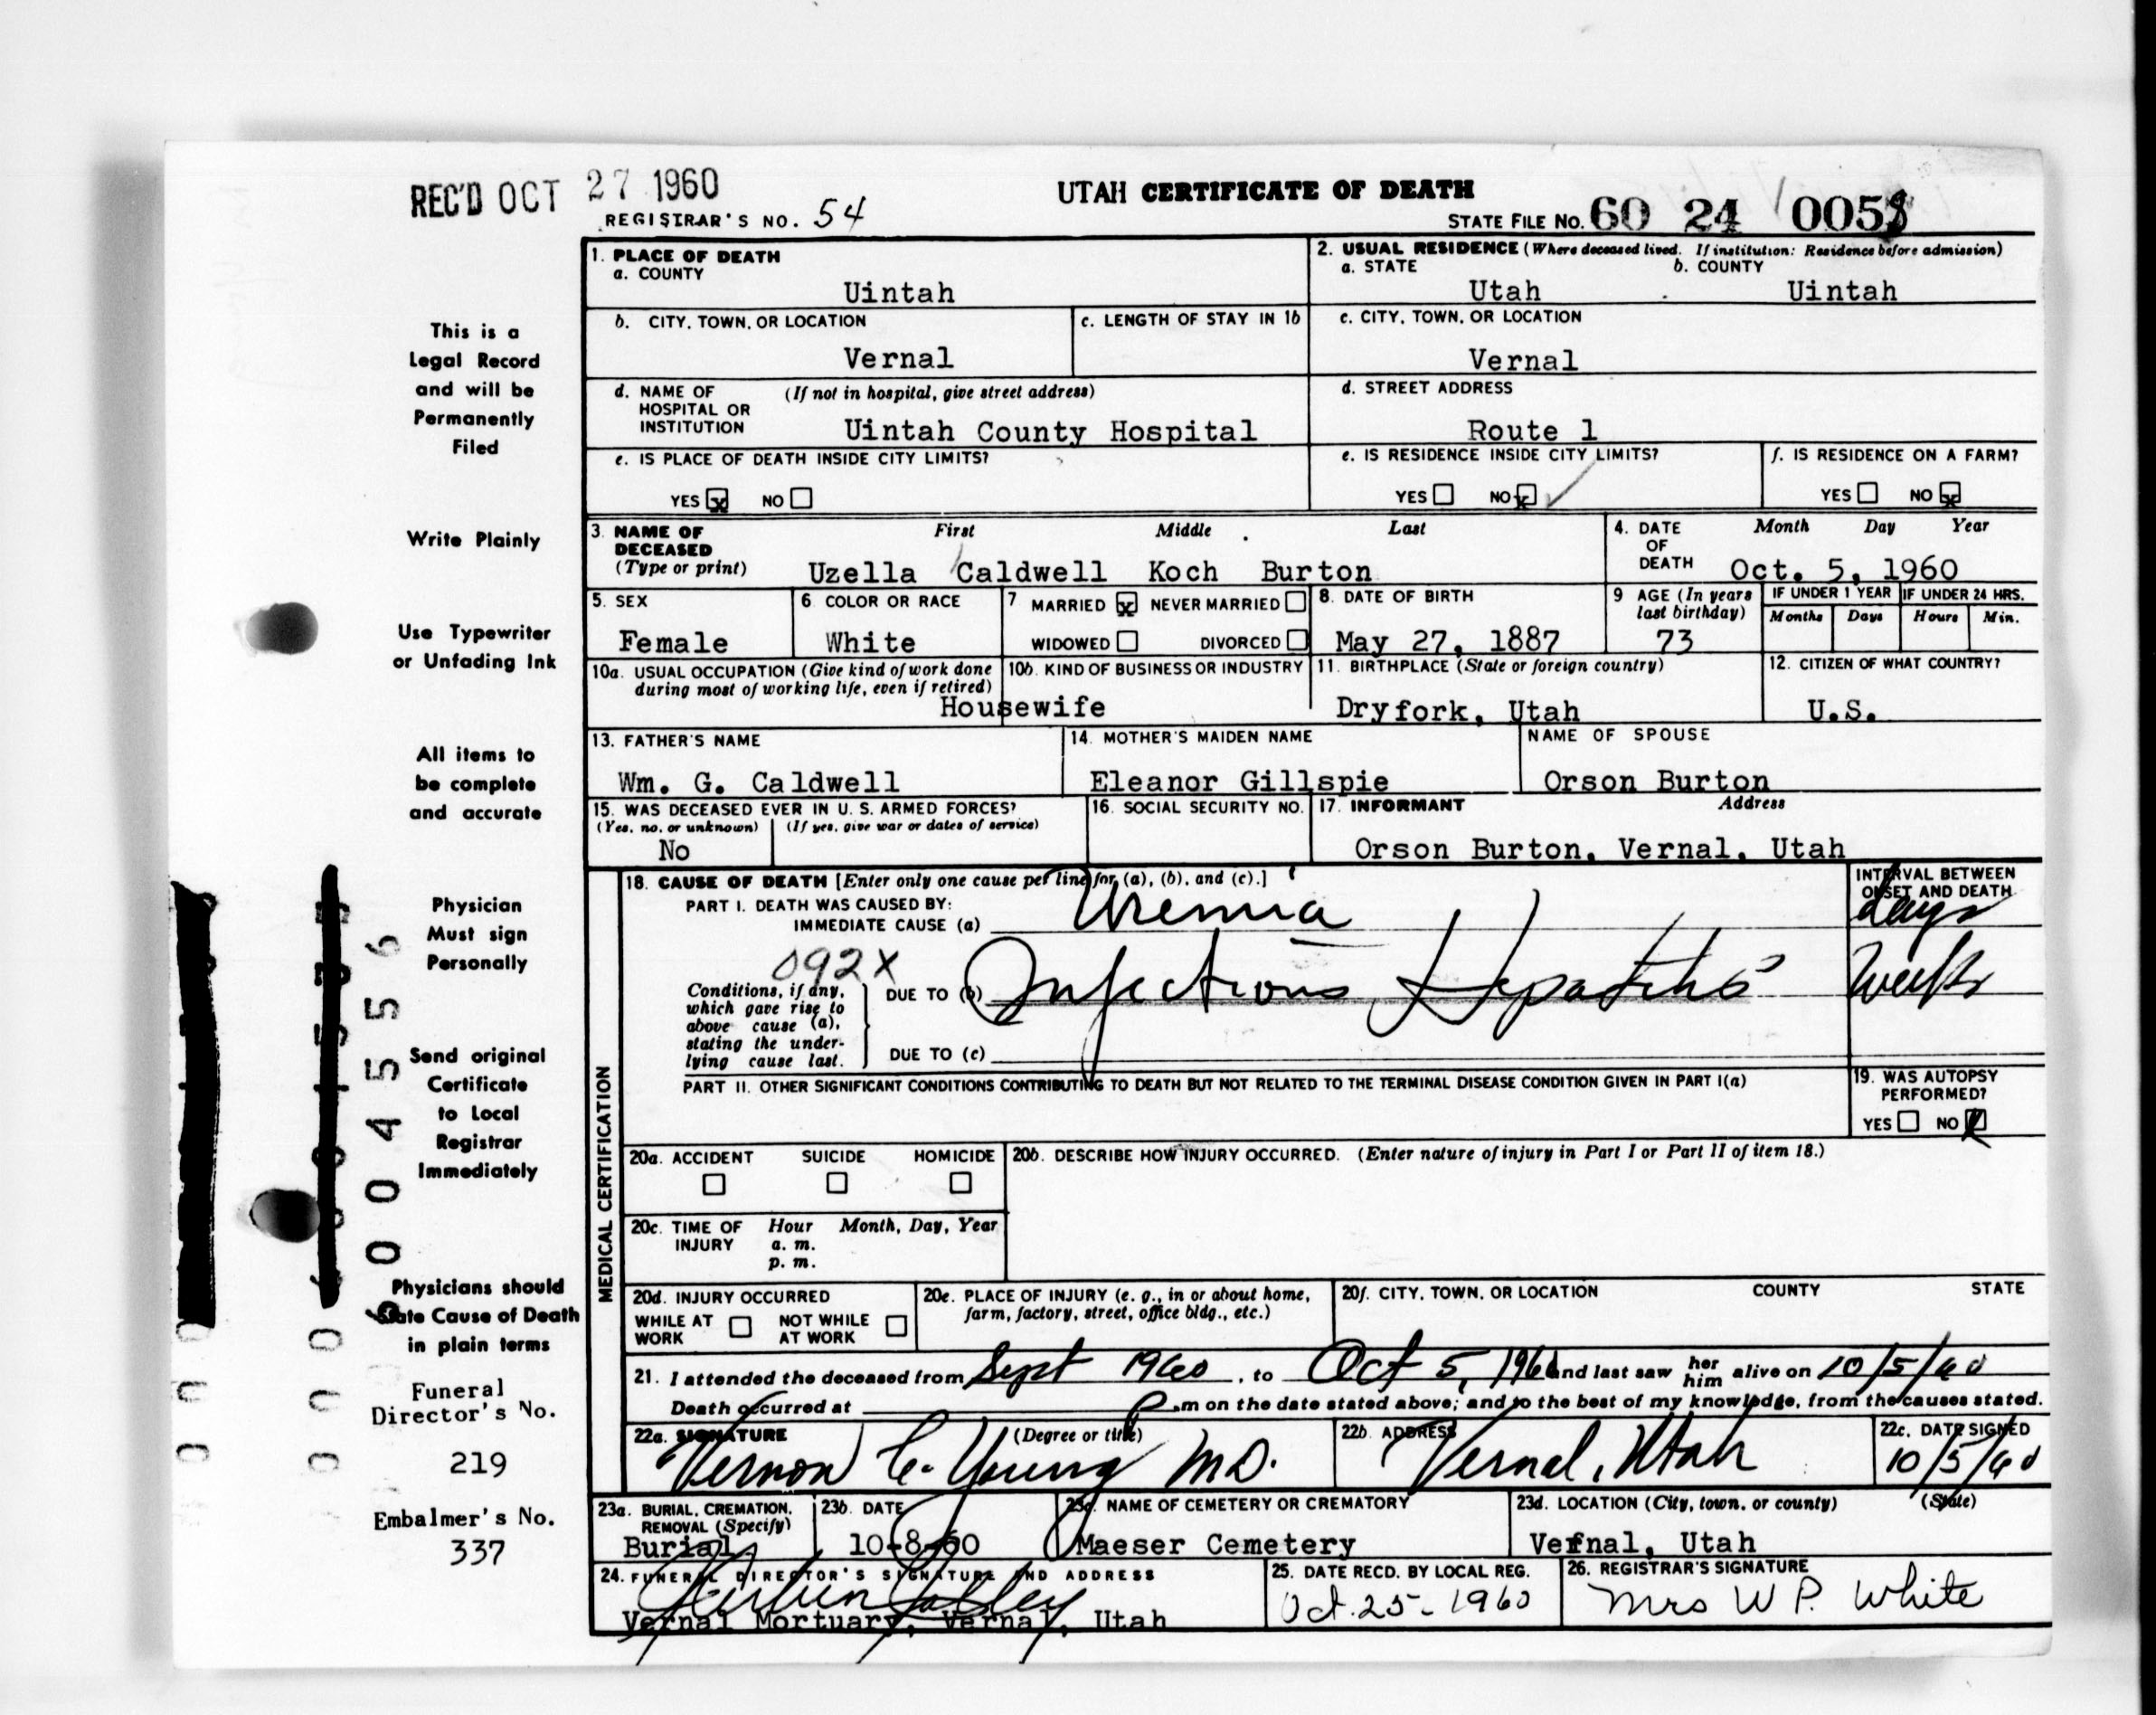 REC'D OCT 27 1960
UTAH CERTIFICATE OF DEATH
REGISTRAR'S NO. 54
STATE FILE NO. 60 24 005
1. PLACE OF DEATH
a. COUNTY
Uintah
2. USUAL RESIDENCE (Where deceased lived. If institution: Residence before admission)
a. STATE b. COUNTY
Utah Uintah
b. CITY, TOWN, OR LOCATION
Vernal
c. LENGTH OF STAY IN 1b
c. CITY, TOWN, OR LOCATION
Vernal
d. NAME OF (If not in hospital, give street address)
HOSPITAL OR
INSTITUTION
Uintah County Hospital
d. STREET ADDRESS
Route 1
e. IS PLACE OF DEATH INSIDE CITY LIMITS?
YES x NO
e. IS RESIDENCE INSIDE CITY LIMITS?
YES NO x
f. IS RESIDENCE ON A FARM?
YES NO x
3. NAME OF First Middle Last
DECEASED
(Type or print) Uzella Caldwell Koch Burton
4. DATE Month Day Year
OF
DEATH Oct. 5, 1960
5. SEX
Female
6. COLOR OR RACE
White
7 MARRIED x NEVER MARRIED
WIDOWED DIVORCED
8. DATE OF BIRTH
May 27, 1887
9 AGE (In years
last birthday)
73
IF UNDER 1 YEAR IF UNDER 24 HRS.
Months Days Hours Min.
10a. USUAL OCCUPATION (Give kind of work done
during most of working life, even if retired)
10b. KIND OF BUSINESS OR INDUSTRY
Housewife
11. BIRTHPLACE (State or foreign country)
Dryfork, Utah
12. CITIZEN OF WHAT COUNTRY?
U.S.
13. FATHER'S NAME
Wm. G. Caldwell
14. MOTHER'S MAIDEN NAME
Eleanor Gillspie
NAME OF SPOUSE
Orson Burton
15. WAS DECEASED EVER IN U. S. ARMED FORCES?
(Yes, no, or unknown) (If yes, give war or dates of service)
No
16. SOCIAL SECURITY NO.
17. INFORMANT Address
Orson Burton, Vernal, Utah
MEDICAL CERTIFICATION
18. CAUSE OF DEATH [Enter only one cause per line for (a), (b), and (c).]
INTERVAL BETWEEN
ONSET AND DEATH
PART I. DEATH WAS CAUSED BY:
IMMEDIATE CAUSE (a) Uremia days
092X
Conditions, if any,
which gave rise to
above cause (a),
stating the under-
lying cause last.
DUE TO (b) Infectious Hepatitis Weeks
DUE TO (c)
PART II. OTHER SIGNIFICANT CONDITIONS CONTRIBUTING TO DEATH BUT NOT RELATED TO THE TERMINAL DISEASE CONDITION GIVEN IN PART I(a)
19. WAS AUTOPSY
PERFORMED?
YES NO
20a. ACCIDENT SUICIDE HOMICIDE
20b. DESCRIBE HOW INJURY OCCURRED. (Enter nature of injury in Part I or Part II of item 18.)
20c. TIME OF Hour Month, Day, Year
INJURY a. m.
p. m.
20d. INJURY OCCURRED
WHILE AT NOT WHILE
WORK AT WORK
20e. PLACE OF INJURY (e. g., in or about home,
farm, factory, street, office bldg., etc.)
20f. CITY, TOWN, OR LOCATION COUNTY STATE
21. I attended the deceased from Sept 1960, to Oct 5, 1960 and last saw her him alive on 10/5/60
Death occurred at P .m on the date stated above; and to the best of my knowledge, from the causes stated.
22a. SIGNATURE (Degree or title)
Vernon C. Young MD.
22b. ADDRESS
Vernal, Utah
22c. DATE SIGNED
10/5/60
23a. BURIAL, CREMATION,
REMOVAL (Specify)
Burial
23b. DATE
10-8-60
23c. NAME OF CEMETERY OR CREMATORY
Maeser Cemetery
23d. LOCATION (City, town, or county) (State)
Vernal, Utah
24. FUNERAL DIRECTOR'S SIGNATURE AND ADDRESS
Vernal Mortuary, Vernal, Utah
25. DATE RECD. BY LOCAL REG.
Oct. 25-1960
26. REGISTRAR'S SIGNATURE
Mrs W P. White
This is a
Legal Record
and will be
Permanently
Filed
Write Plainly
Use Typewriter
or Unfading Ink
All items to
be complete
and accurate
Physician
Must sign
Personally
Send original
Certificate
to Local
Registrar
Immediately
Physicians should
State Cause of Death
in plain terms
Funeral
Director's No.
219
Embalmer's No.
337